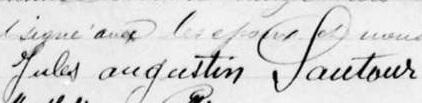 signé avec les époux et nous
Jules augustin Lautour